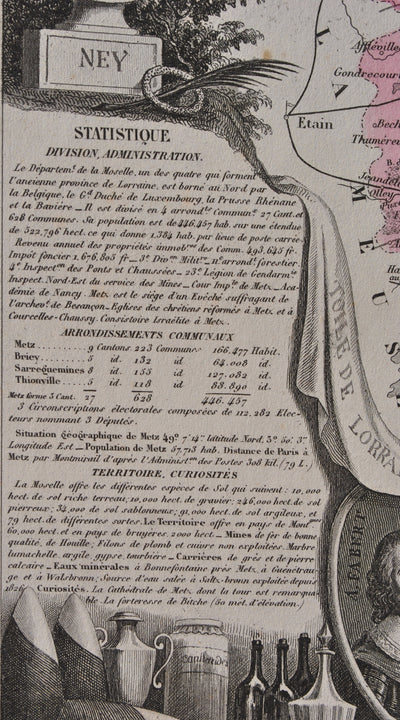 NEY
STATISTIQUE
DIVISION, ADMINISTRATION.
Le Départemt. de la Moselle, un des quatre qui forment
l'ancienne province de Lorraine, est borné au Nord par
la Belgique, le Gd. Duché de Luxembourg, la Prusse Rhénane
et la Bavière _ Il est divisé en 4 arrondts. Communx. 27 Cant. et
628 Communes. Sa population est de 446,457 hab. sur une étendue
de 522,796 hect. ce qui donne 1,384 hab. par lieue de poste carrée.
Revenu annuel des propriétés immobres. des Comm. 493,645 fr.
Impôt foncier 1,676,803 fr _ 3e. Divon. Militre. 11e. arrondt. forestier.
4e. Inspectn. des Ponts et Chaussées _ 23e. Légion de Gendarmie.
Inspect. Nord-Est du service des Mines _ Cour Imple. de Metz _ Aca-
démie de Nancy. Metz est le siége d'un Evêché suffragant de
l'archevé. de Besançon _ Eglises des chrétiens réformés à Metz, et à
Courcelles-Chaussy. Consistoire Israélite à Metz.
ARRONDISSEMENTS COMMUNAUX
Metz 9 Cantons 223 Communes 166,477 Habit.
Briey 5 id. 132 id. 64,008 id.
Sarreguemines 8 id. 155 id. 127,082 id.
Thionville 5 id. 118 id. 88,890 id.
Metz forme 3 Cant. 27 628 446,457
3 Circonscriptions électorales composées de 112,282 Elec-
teurs nommant 3 Députés.
Situation Géographique de Metz 49°. 7' 14" latitude Nord, 3°. 50'. 3"
Longitude Est _ Population de Metz 57,713 hab. Distance de Paris à
Metz par Montmirail d'après l'Administon. des Postes 308 kil. (79 L.)
TERRITOIRE, CURIOSITÉS
La Moselle offre les différentes espèces de Sol qui suivent : 10,000
hect. de sol riche terreau; 10,000 hect. de gravier; 246,000 hect. de sol
pierreux; 34,000 de sol sablonneux; 91,000 hect. de sol argileux, et
79 hect. de différentes sortes. Le Territoire offre en pays de Montnes
60,000 hect. et en pays de bruyères 2,000 hect. _ Mines de fer de bonne
qualité, de Houille; Filons de plomb et cuivre non exploitées. Marbre
lumachelle, argile, gypse, tourbière _ Carrières de grès et de pierre
calcaire _ Eaux minérales à Bonnefontaine près Metz, à Guénetran-
ge et à Walsbronn; Source d'eau salée à Saltz-bronn exploitée depuis
1826. Curiosités. La Cathédrale de Metz, dont la tour est remarqua-
ble. La forteresse de Bitche (50 met. d'élévation.)
Etain
Affléville
Gondrecourt
Bech
Thumerev
Jeandel
Olley
L
A
M
E
U
S
TOILE DE LORRAI
FABERT